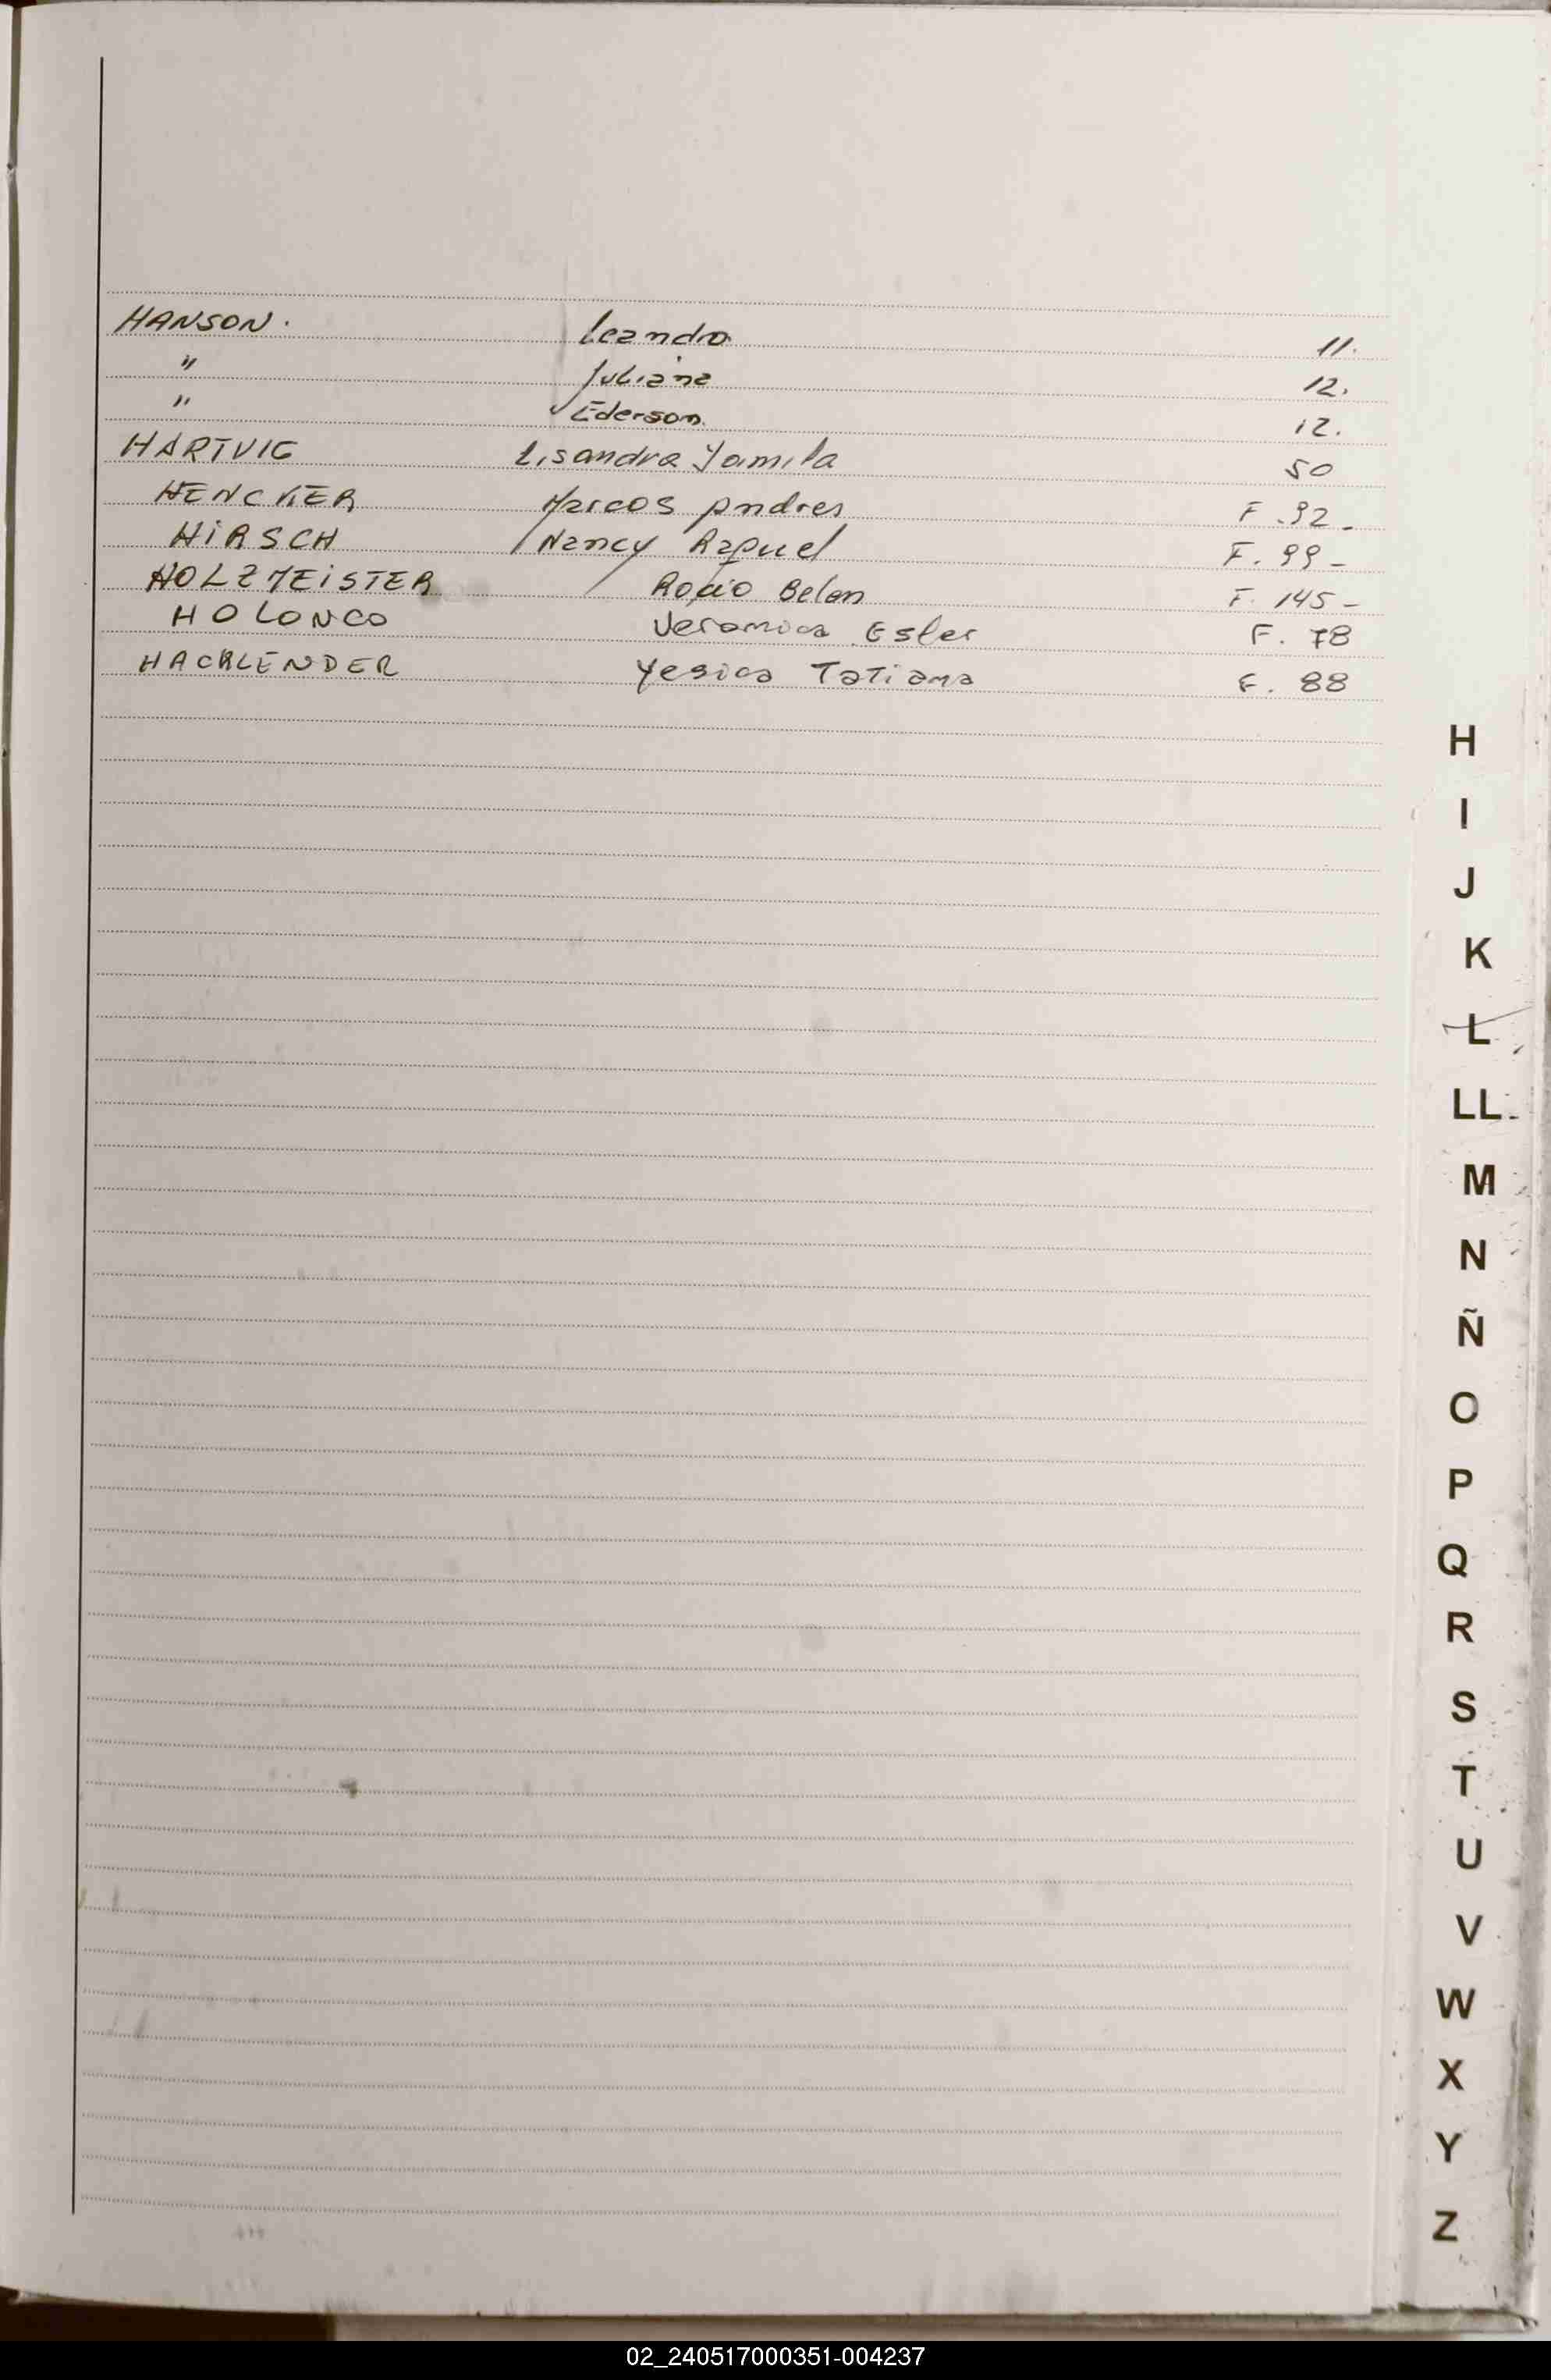 HANSON. Leandro 11.
" Juliana 12.
" Ederson. 12.
HARTVIG Lisandra Yamila 50
HENCKER Marcos Andres F. 92-
HIRSCH Nancy Raquel F. 99-
HOLZMEISTER Rocio Belen F. 145-
HOLONCO Veronica Ester F. 78
HACKLENDER Yesica Tatiana F. 88
H
I
J
K
L
LL
M
N
Ñ
O
P
Q
R
S
T
U
V
W
X
Y
Z
02_240517000351-004237